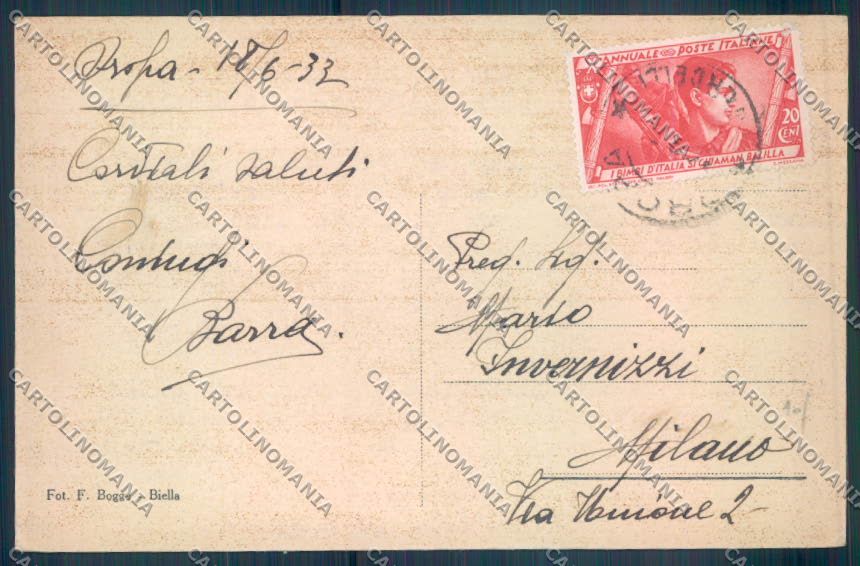 Oropa - 18/6-33
Cordiali saluti
Coniugi
Barra.
Fot. F. Boggio - Biella
ANNUALE POSTE ITALIANE
20
CENT
I BIMBI D'ITALIA SI CHIAMAN BALILLA
Preg. Sig.
Mario
Invernizzi
Milano
Via Unione 2
CARTOLINOMANIA